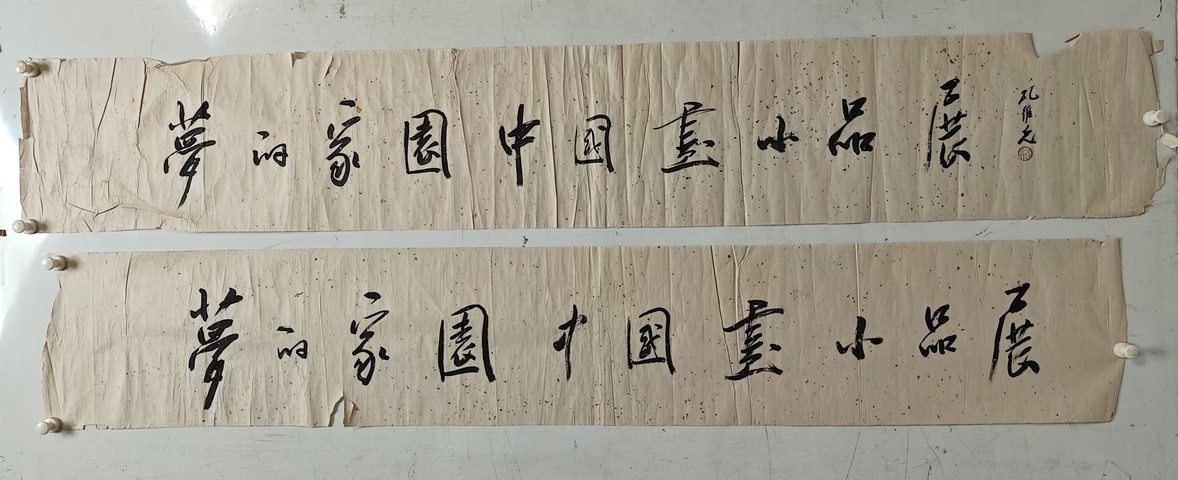 夢的家園中國畫小品展
孔維克
夢的家園中國畫小品展